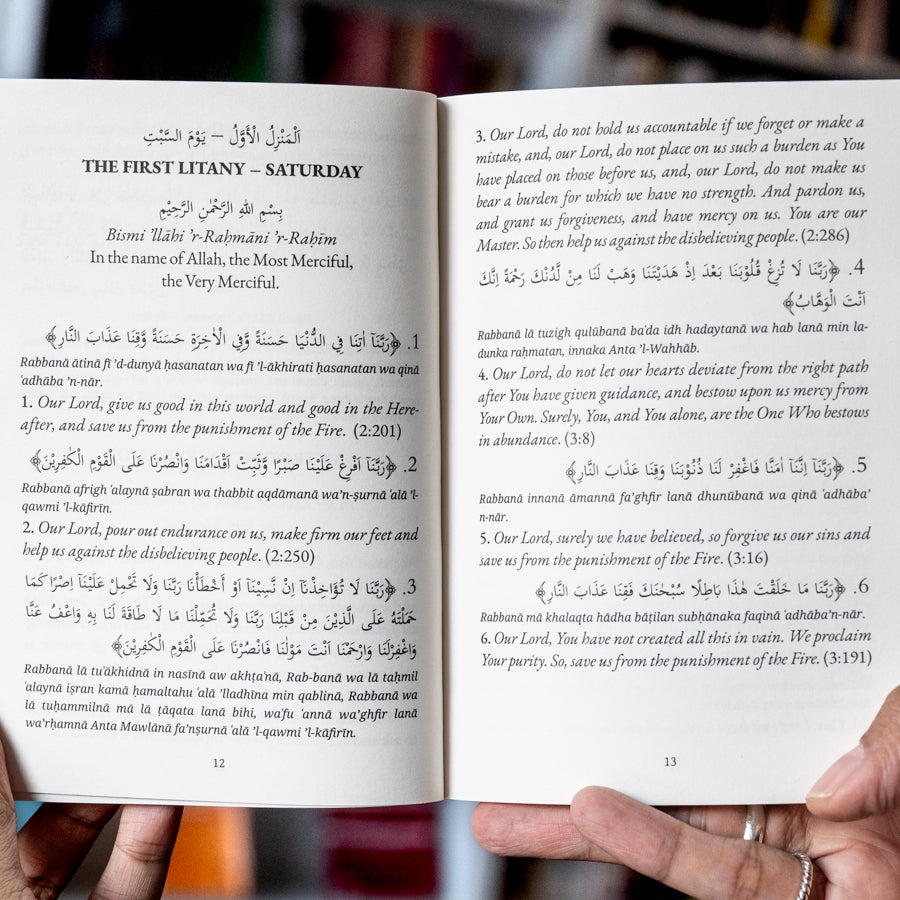 اَلْمَنْزِلُ الْأَوَّلُ – يَوْمَ السَّبْتِ
THE FIRST LITANY – SATURDAY
بِسْمِ اللهِ الرَّحْمٰنِ الرَّحِيْمِ
Bismi ’llāhi ’r-Raḥmāni ’r-Raḥīm
In the name of Allah, the Most Merciful,
the Very Merciful.
1. ﴿رَبَّنَآ اٰتِنَا فِي الدُّنْيَا حَسَنَةً وَّفِي الْاٰخِرَةِ حَسَنَةً وَّقِنَا عَذَابَ النَّارِ﴾
Rabbanā ātinā fi ’d-dunyā ḥasanatan wa fi ’l-ākhirati ḥasanatan wa qinā
‘adhāba ’n-nār.
1. Our Lord, give us good in this world and good in the Here-
after, and save us from the punishment of the Fire. (2:201)
2. ﴿رَبَّنَآ اَفْرِغْ عَلَيْنَا صَبْرًا وَّثَبِّتْ اَقْدَامَنَا وَانْصُرْنَا عَلَى الْقَوْمِ الْكٰفِرِيْنَ﴾
Rabbanā afrigh ‘alaynā ṣabran wa thabbit aqdāmanā wa’n-ṣurnā ‘alā ’l-
qawmi ’l-kāfirīn.
2. Our Lord, pour out endurance on us, make firm our feet and
help us against the disbelieving people. (2:250)
3. ﴿رَبَّنَا لَا تُؤَاخِذْنَآ اِنْ نَّسِيْنَآ اَوْ اَخْطَأْنَا رَبَّنَا وَلَا تَحْمِلْ عَلَيْنَآ اِصْرًا كَمَا
حَمَلْتَهُ عَلَى الَّذِيْنَ مِنْ قَبْلِنَا رَبَّنَا وَلَا تُحَمِّلْنَا مَا لَا طَاقَةَ لَنَا بِهِ وَاعْفُ عَنَّا
وَاغْفِرْلَنَا وَارْحَمْنَا اَنْتَ مَوْلٰنَا فَانْصُرْنَا عَلَى الْقَوْمِ الْكٰفِرِيْنَ﴾
Rabbanā lā tu’ākhidnā in nasīnā aw akhṭa’nā, Rab-banā wa lā taḥmil
‘alaynā iṣran kamā ḥamaltahu ‘alā ’lladhīna min qablinā, Rabbanā wa
lā tuḥammilnā mā lā ṭāqata lanā bihi, wa‘fu ‘annā wa’ghfir lanā
wa’rḥamnā Anta Mawlānā fa’nṣurnā ‘alā ’l-qawmi ’l-kāfirīn.
12
3. Our Lord, do not hold us accountable if we forget or make a
mistake, and, our Lord, do not place on us such a burden as You
have placed on those before us, and, our Lord, do not make us
bear a burden for which we have no strength. And pardon us,
and grant us forgiveness, and have mercy on us. You are our
Master. So then help us against the disbelieving people. (2:286)
4. ﴿رَبَّنَا لَا تُزِغْ قُلُوْبَنَا بَعْدَ اِذْ هَدَيْتَنَا وَهَبْ لَنَا مِنْ لَّدُنْكَ رَحْمَةً اِنَّكَ
اَنْتَ الْوَهَّابُ﴾
Rabbanā lā tuzigh qulūbanā ba‘da idh hadaytanā wa hab lanā min la-
dunka raḥmatan, innaka Anta ’l-Wahhāb.
4. Our Lord, do not let our hearts deviate from the right path
after You have given guidance, and bestow upon us mercy from
Your Own. Surely, You, and You alone, are the One Who bestows
in abundance. (3:8)
5. ﴿رَبَّنَآ اِنَّنَآ اٰمَنَّا فَاغْفِرْ لَنَا ذُنُوْبَنَا وَقِنَا عَذَابَ النَّارِ﴾
Rabbanā innanā āmannā fa’ghfir lanā dhunūbanā wa qinā ‘adhāba’
n-nār.
5. Our Lord, surely we have believed, so forgive us our sins and
save us from the punishment of the Fire. (3:16)
6. ﴿رَبَّنَا مَا خَلَقْتَ هٰذَا بَاطِلًا سُبْحٰنَكَ فَقِنَا عَذَابَ النَّارِ﴾
Rabbanā mā khalaqta hādha bāṭilan subḥānaka faqinā ‘adhāba’n-nār.
6. Our Lord, You have not created all this in vain. We proclaim
Your purity. So, save us from the punishment of the Fire. (3:191)
13